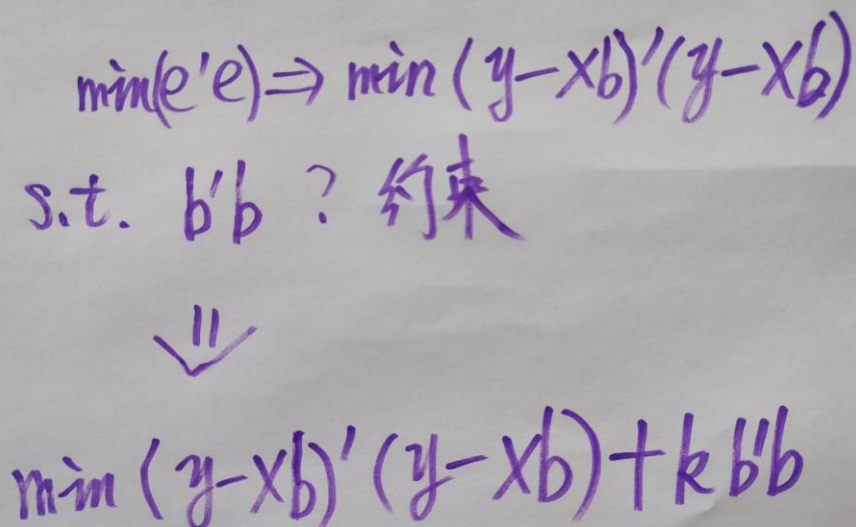 min(e'e)⇒ min(y-Xb)'(y-Xb)
s.t. b'b ? 约束
⇓
min(y-Xb)'(y-Xb)+kb'b